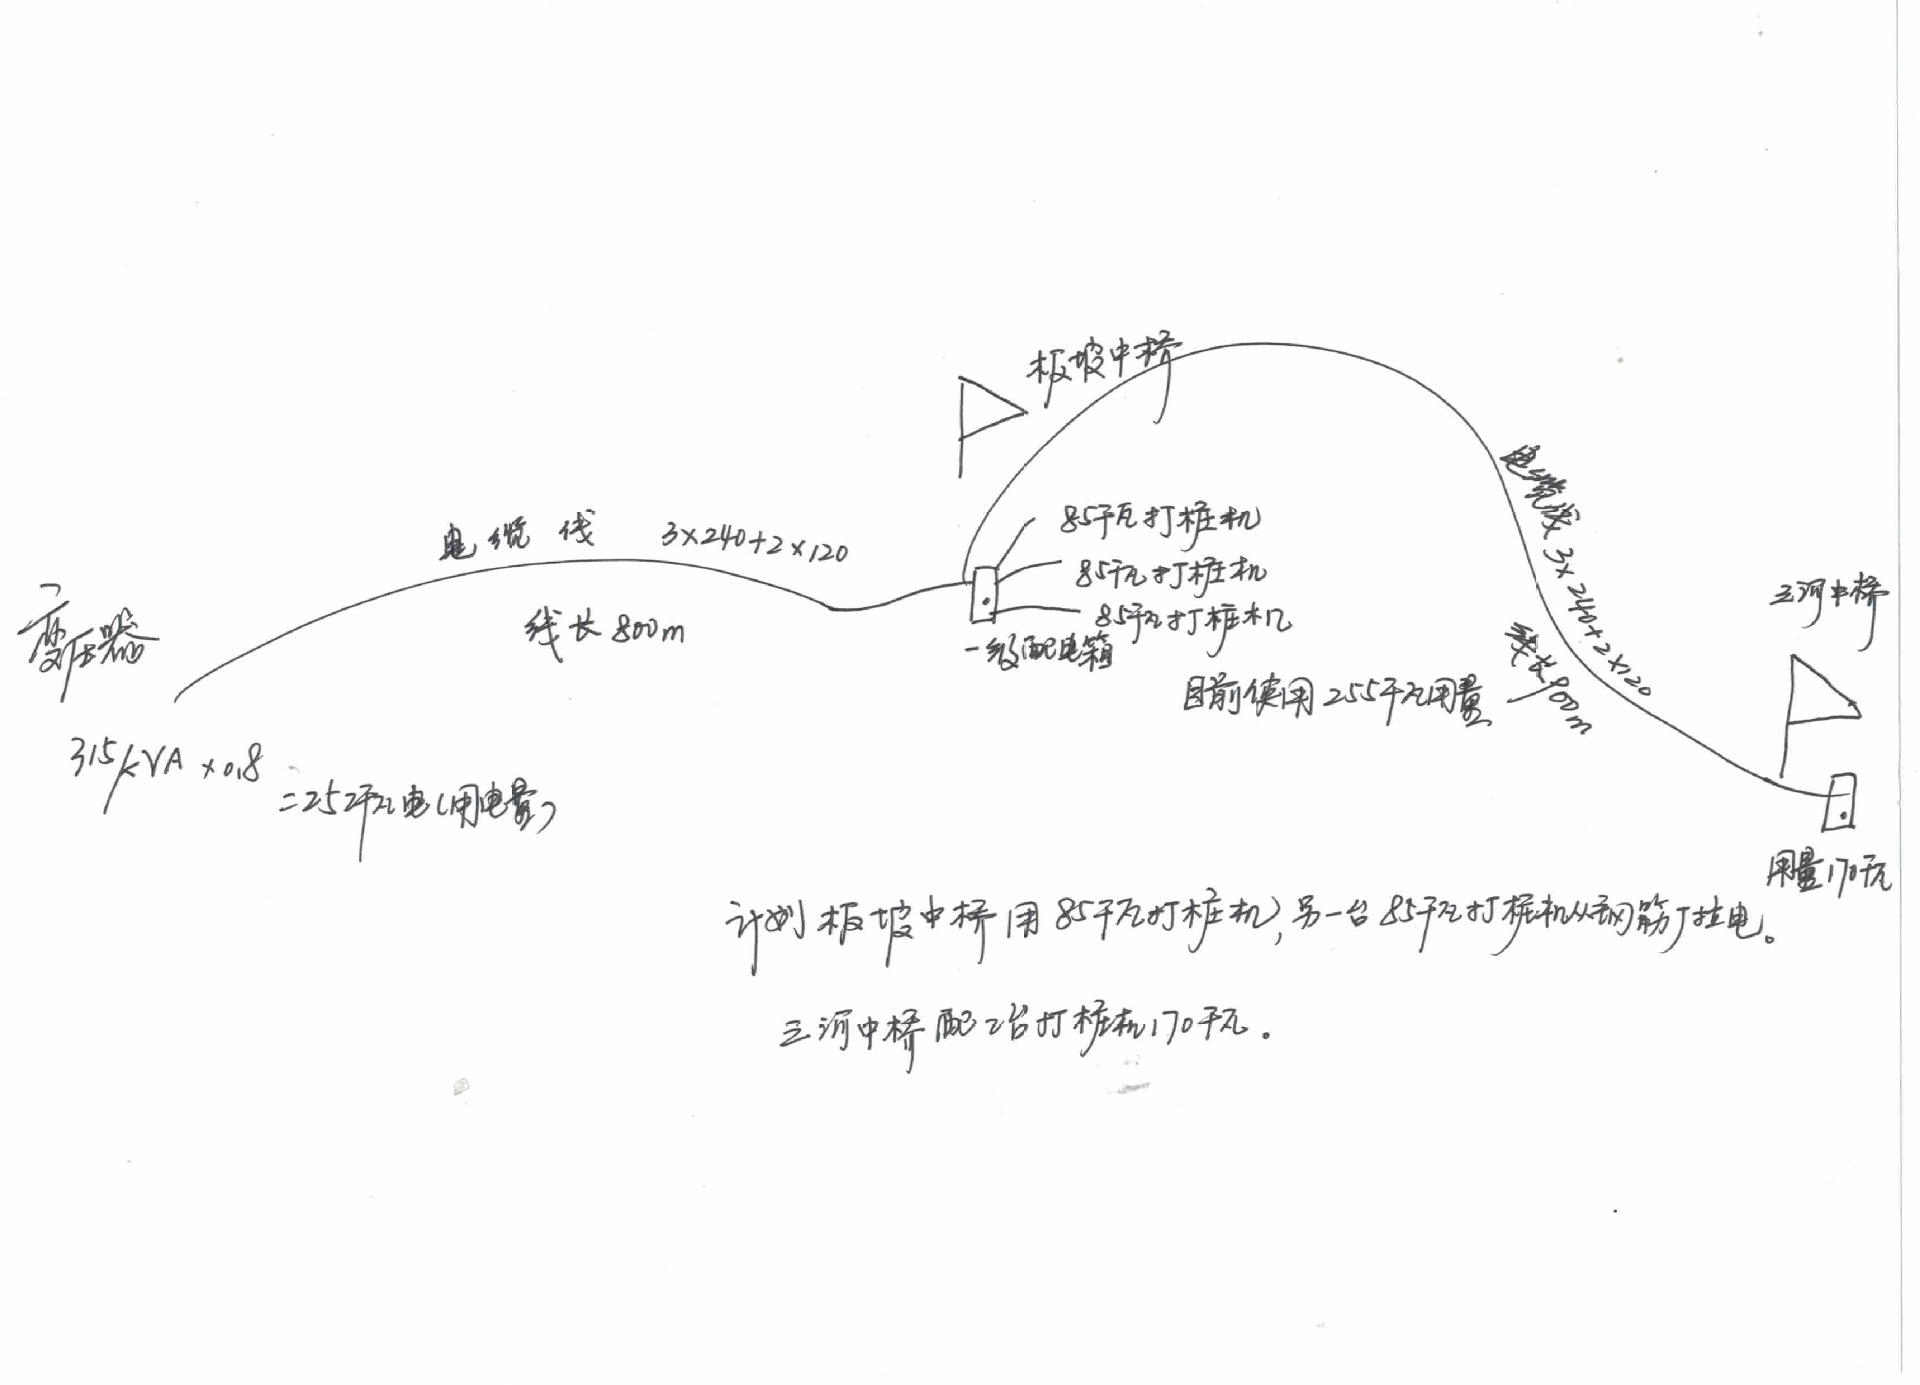 板坡中桥
电缆线 3×240+2×120
线长800m
变压器
315kVA×0.8
=252千瓦电(用电量)
85千瓦打桩机
85千瓦打桩机
85千瓦打桩机
一级配电箱
目前使用255千瓦用量
电缆线 3×240+2×120
线长900m
三河中桥
用量170千瓦
计划板坡中桥用85千瓦打桩机,另一台85千瓦打桩机从钢筋厂拉电。
三河中桥配2台打桩机170千瓦.